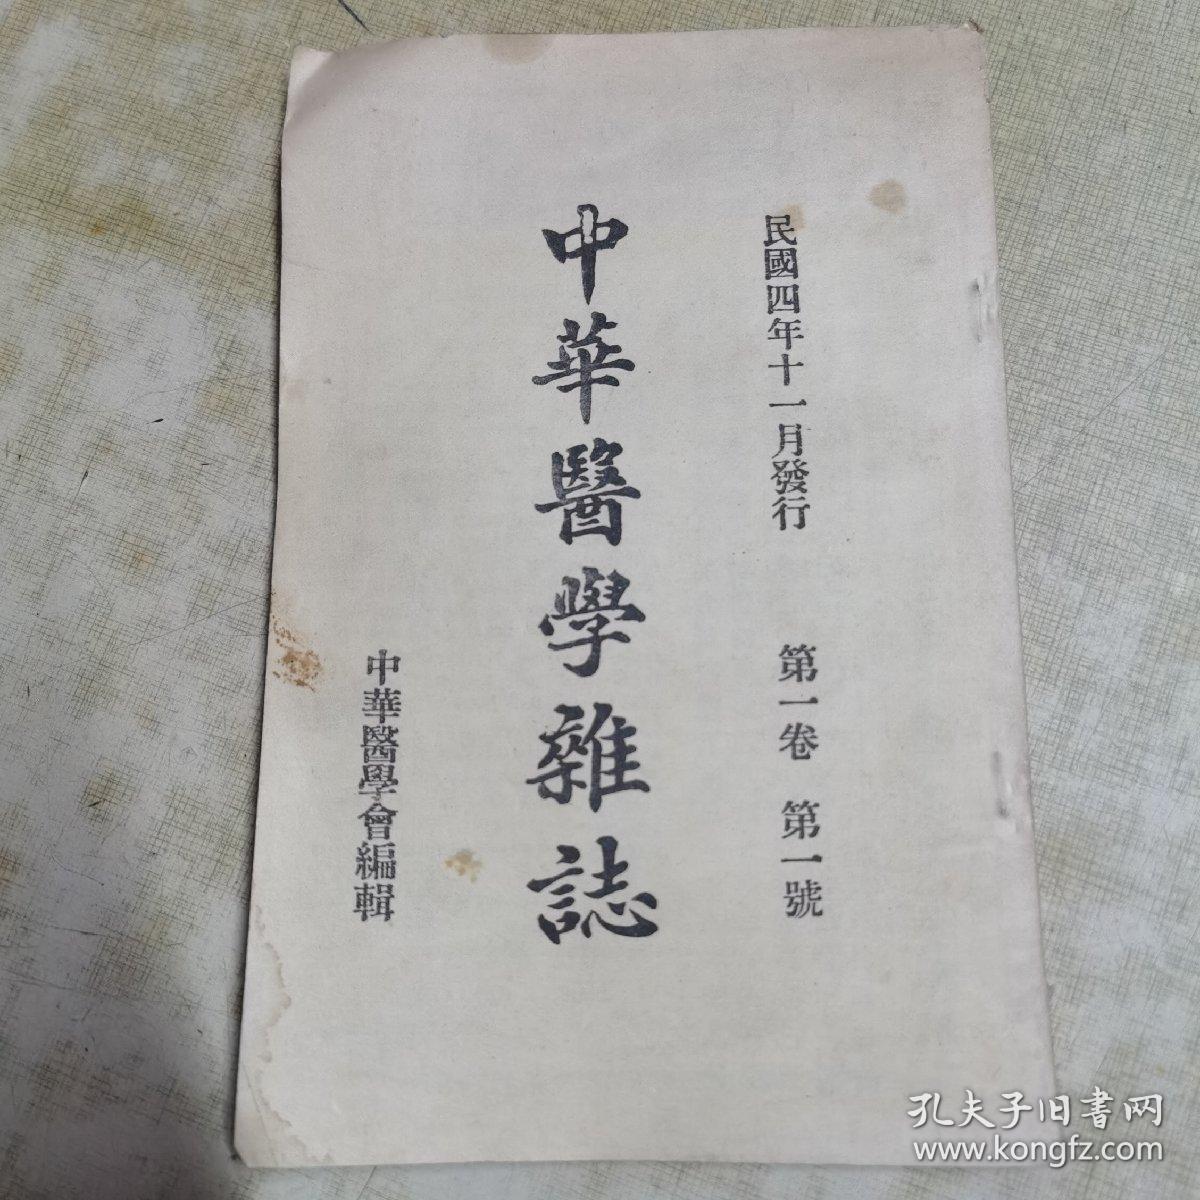 民國四年十一月發行　第一卷　第一號
中華醫學雜誌
中華醫學會編輯
孔夫子旧書网
www.kongfz.com